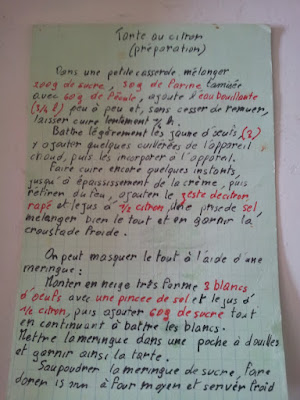 Tarte au citron
(préparation)
Dans une petite casserole mélanger
200g de sucre, 30g de farine tamisée
avec 60g de fécule, ajouter l'eau bouillante
(3/4 l) peu à peu et, sans cesser de remuer,
laisser cuire lentement 1/4 h.
Battre légèrement les jaune d'œufs (3)
y ajouter quelques cuillerées de l'appareil
chaud, puis les incorporer à l'appareil.
Faire cuire encore quelques instants,
jusqu'à épaississement de la crème, puis
retirer du feu, ajouter le zeste de citron
rapé et le jus d' 1/2 citron, une prise de sel,
mélanger bien le tout et en garnir la
croustade froide.
On peut masquer le tout à l'aide d'une
meringue:
Monter en neige très ferme 3 blancs
d'œufs avec une pincée de sel et le jus d'
1/2 citron, puis ajouter 60g de sucre tout
en continuant à battre les blancs.
Mettre la meringue dans une poche à douilles
et garnir ainsi la tarte.
Saupoudrer la meringue de sucre, faire
dorer 15 mn à four moyen et servir froid